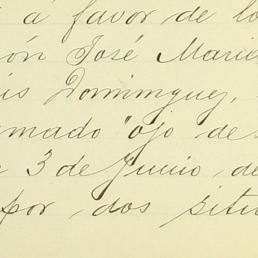 á favor de lo
ón José Marí
is Dominguez,
mado "ojo de
3 de Junio, de
por dos sitio